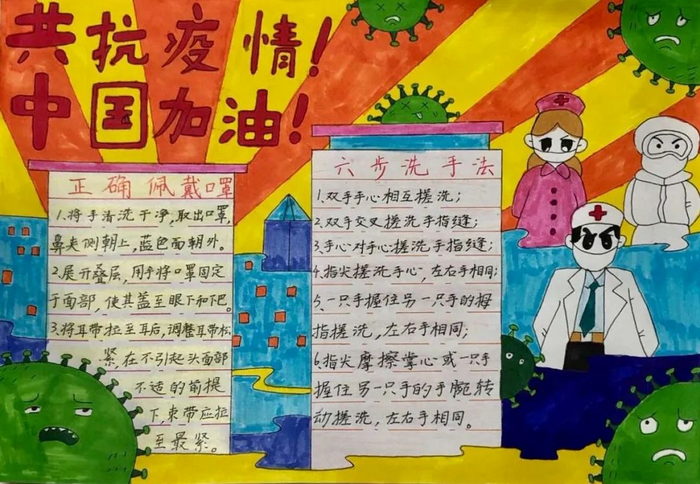 共抗疫情!
中国加油!
正确佩戴口罩
1.将手清洗干净,取出口罩,
鼻夹侧朝上,蓝色面朝外。
2.展开叠层,用手将口罩固定
于面部,使其盖至眼下和下巴。
3.将耳带拉至耳后,调整耳带松
紧,在不引起头面部
不适的前提
下,束带应拉
至最紧。
六步洗手法
1.双手手心相互搓洗;
2.双手交叉搓洗手指缝;
3.手心对手心搓洗手指缝;
4.指尖搓洗手心,左右手相同;
5.一只手握住另一只手的拇
指搓洗,左右手相同;
6.指尖摩擦掌心或一只手
握住另一只手的手腕转
动搓洗,左右手相同。